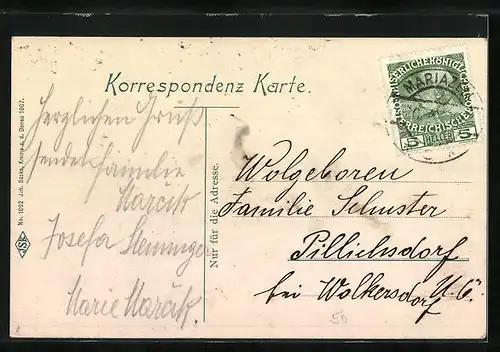 Korrespondenz Karte.
Herzlichen Gruß
sendet Familie
Marcik
Josefa Steininger
Marie Marcik.
Nur für die Adresse.
No. 1092 Joh. Sacka, Krems a. d. Donau 1907.
JSK
MARIAZELL
KAISERLICHE KÖNIGLICHE
ÖSTERREICHISCHE
5 5
Wolgeboren
Familie Schuster
Pillichsdorf
bei Wolkersdorf N. Ö.
50